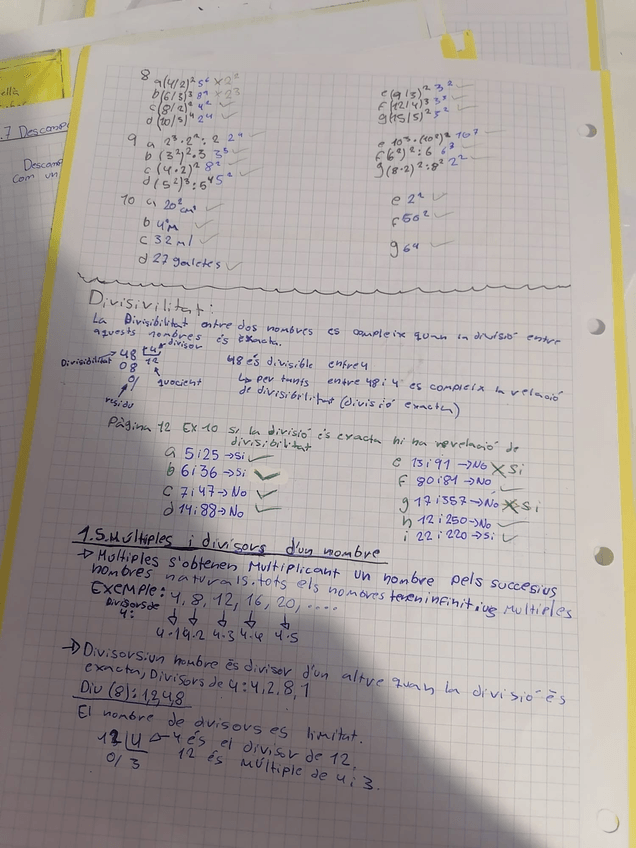 ella
.7 Descompo
Descom
com un
8
a (4/2)² 5⁶ × 2²
b (6/3)³ 8⁴ × 23
c (8/2)² 4² ✓
d (10/5)⁴ 2⁴ ✓
e (9/3)² 3² ✓
f (12/4)³ 3³ ✓
g (15/5)² 5² ✓
9 a 2³ · 2² : 2 2⁴ ✓
b (3²)² · 3 3⁵ ✓
c (4 · 2)² 8² ✓
d (5²)³ : 5⁴ 5² ✓
e 10³ · (10²)² 10⁷
f (6²)² : 6 6³ ✓
g (8 · 2)² : 8² 2² ✓
10 a 20² cm² ✓
b 4² m ✓
c 32 ml ✓
d 27 galetes ✓
e 2² ✓
f 50² ✓
g 64 ✓
Divisivilitat:
La Divisibilitat entre dos nombres es compleix quan la divisió entre
aquests nombres és exacta.
Divisibilitat → 48 |4 divisor
08 12
0/ quocient
residu
48 és divisible entre 4
↳ per tants entre 48 i 4 es compleix la relació
de divisibilitat (divisió exacta)
Pàgina 12 Ex 10 si la divisió és exacta hi ha revelació de
divisibilitat
a 5 i 25 → Si ✓
b 6 i 36 → Si ✓
c 7 i 47 → No ✓
d 14 i 88 → No ✓
e 13 i 91 → No × Si
f 80 i 81 → No ✓
g 17 i 357 → No × Si
h 12 i 250 → No ✓
i 22 i 220 → Si ✓
1.5. Múltiples i divisors d'un nombre
→ Multiples s'obtenen multiplicant un nombre pels succesius
nombres naturals. tots els nombres tenen infinitius multiples
Exemple: 4, 8, 12, 16, 20, ....
Divisors de
4:
4·1 4·2 4·3 4·4 4·5
→ Divisors un nombre és divisor d'un altre quan la divisió és
exacta, Divisors de 4: 4, 2, 8, 1
Div (8): 1,2,4,8
El nombre de dvisors es limitat.
12 |4 4 és el divisor de 12.
0/ 3 12 és múltiple de 4 i 3.